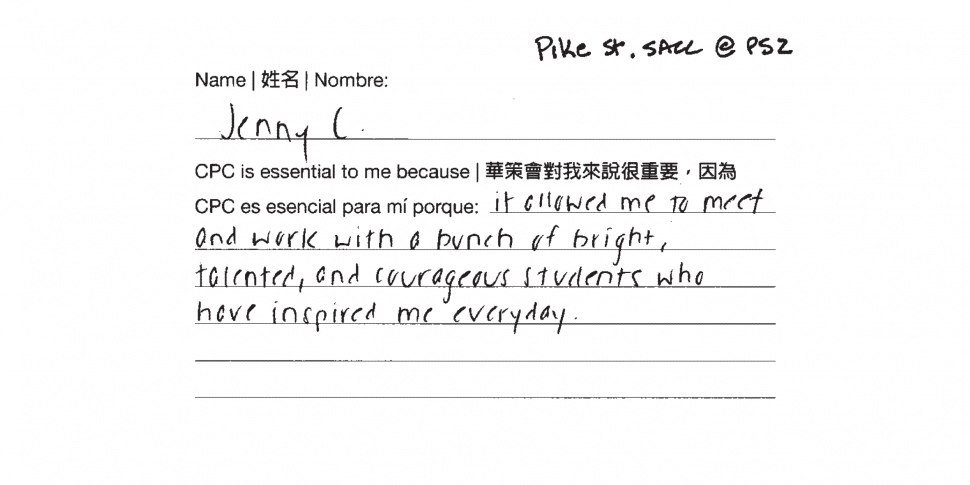 Pike St. SACC @ PS2
Name | 姓名 | Nombre:
Jenny C.
CPC is essential to me because | 華策會對我來說很重要，因為
CPC es esencial para mí porque: it allowed me to meet
and work with a bunch of bright,
talented, and courageous students who
have inspired me everyday.